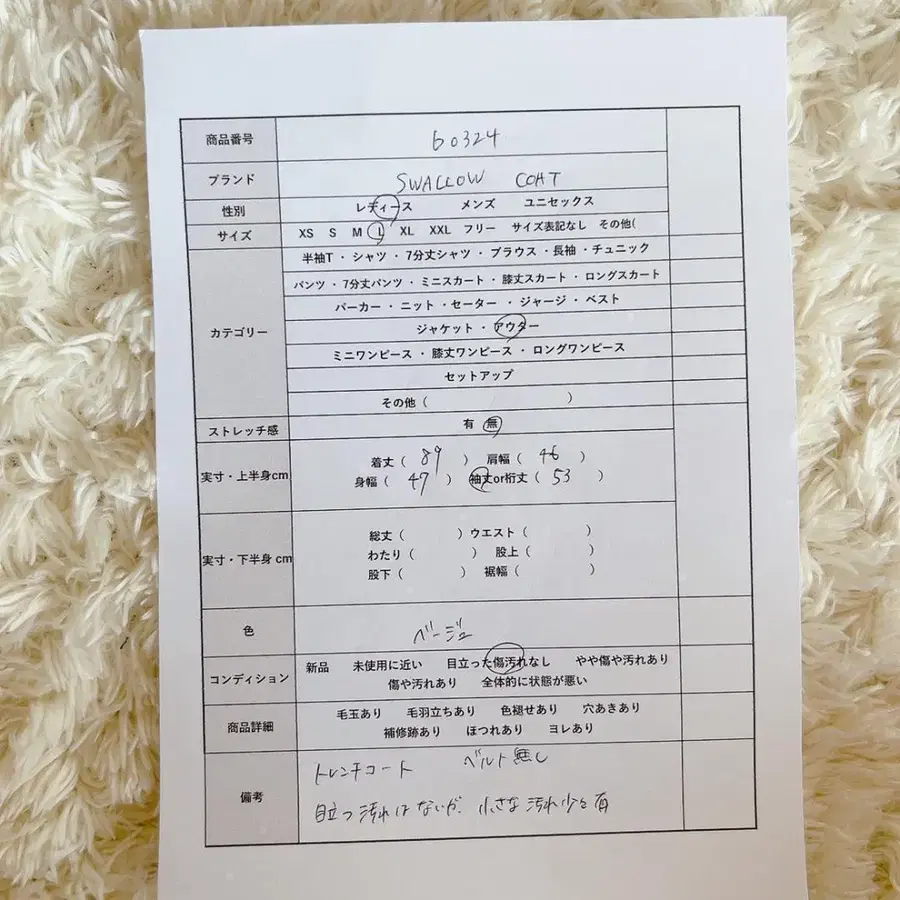 商品番号 60324
ブランド SWALLOW COAT
性別 レディース メンズ ユニセックス
サイズ XS S M L XL XXL フリー サイズ表記なし その他(
カテゴリー
半袖T・シャツ・7分丈シャツ・ブラウス・長袖・チュニック
パンツ・7分丈パンツ・ミニスカート・膝丈スカート・ロングスカート
パーカー・ニット・セーター・ジャージ・ベスト
ジャケット・アウター
ミニワンピース・膝丈ワンピース・ロングワンピース
セットアップ
その他( )
ストレッチ感 有 無
実寸・上半身cm
着丈( 89 ) 肩幅( 46 )
身幅( 47 ) 袖丈or裄丈( 53 )
実寸・下半身cm
総丈( ) ウエスト( )
わたり( ) 股上( )
股下( ) 裾幅( )
色 ベージュ
コンディション
新品 未使用に近い 目立った傷汚れなし やや傷や汚れあり
傷や汚れあり 全体的に状態が悪い
商品詳細
毛玉あり 毛羽立ちあり 色褪せあり 穴あきあり
補修跡あり ほつれあり ヨレあり
備考
トレンチコート ベルト無し
目立つ汚れはないが、小さな汚れ少々有